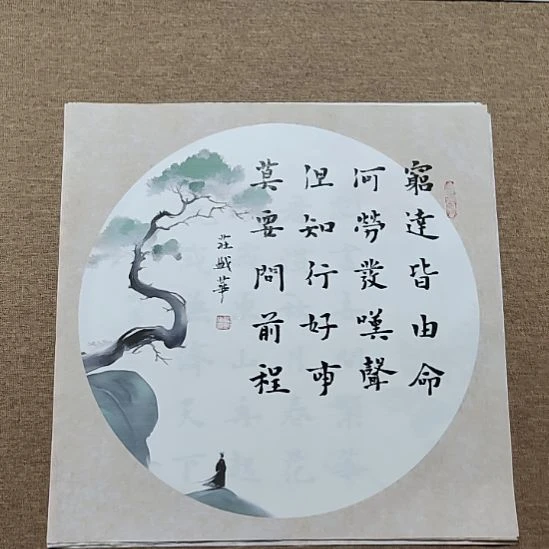 窮達皆由命
何勞發嘆聲
但知行好事
莫要問前程
莊戩華